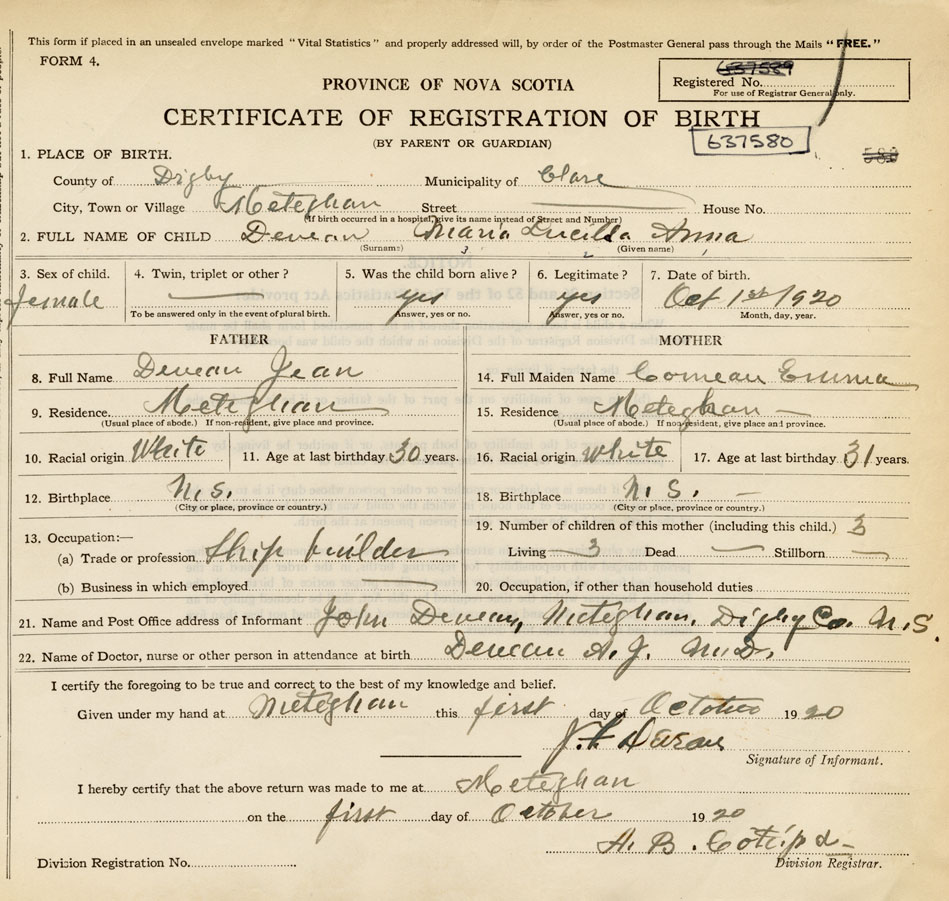 This form if placed in an unsealed envelope marked "Vital Statistics" and properly addressed will, by order of the Postmaster General pass through the Mails "FREE."
FORM 4.
637589
Registered No.
For use of Registrar General only.
PROVINCE OF NOVA SCOTIA
CERTIFICATE OF REGISTRATION OF BIRTH
(BY PARENT OR GUARDIAN)
637580
580
1. PLACE OF BIRTH.
County of Digby Municipality of Clare
City, Town or Village Meteghan Street House No.
(If birth occurred in a hospital, give its name instead of Street and Number)
2. FULL NAME OF CHILD Deveau Maria Lucilla Anna
(Surname) 3 2 (Given name) 1
3. Sex of child. 4. Twin, triplet or other? 5. Was the child born alive? 6. Legitimate? 7. Date of birth.
female yes yes Oct 1st 1920
To be answered only in the event of plural birth. Answer, yes or no. Answer, yes or no. Month, day, year.
FATHER MOTHER
8. Full Name Deveau Jean 14. Full Maiden Name Comeau Emma
9. Residence Meteghan 15. Residence Meteghan
(Usual place of abode.) If non-resident, give place and province. (Usual place of abode.) If non-resident, give place and province.
10. Racial origin White 11. Age at last birthday 30 years. 16. Racial origin white 17. Age at last birthday 31 years.
12. Birthplace N.S. 18. Birthplace N.S.
(City or place, province or country.) (City or place, province or country.)
13. Occupation:— 19. Number of children of this mother (including this child.) 3
(a) Trade or profession Ship builder Living 3 Dead Stillborn
(b) Business in which employed 20. Occupation, if other than household duties
21. Name and Post Office address of Informant John Deveau, Meteghan, Digby Co. N.S.
22. Name of Doctor, nurse or other person in attendance at birth Deveau A. J. M.D.
I certify the foregoing to be true and correct to the best of my knowledge and belief.
Given under my hand at Meteghan this first day of October 1920
Signature of Informant.
I hereby certify that the above return was made to me at Meteghan
on the first day of October 1920
H. B.
Division Registration No. Division Registrar.